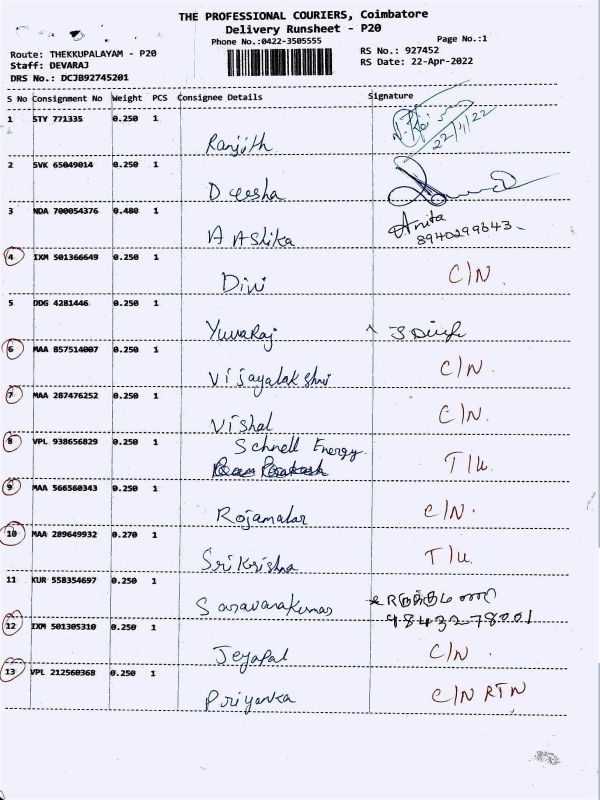 THE PROFESSIONAL COURIERS, Coimbatore
Delivery Runsheet - P20
Phone No.:0422-3505555
Page No.:1
Route: THEKKUPALAYAM - P20
Staff: DEVARAJ
DRS No.: DCJB92745201
RS No.: 927452
RS Date: 22-Apr-2022
S No Consignment No Weight PCS Consignee Details Signature
1 STY 771335 0.250 1
Ranjith 22/4/22
2 SVK 65049014 0.250 1
Deesha
3 NDA 700054376 0.480 1 Anita
A Aslika 8940299643
4 IXM 501366649 0.250 1
Divi C/N
5 DDG 4281446 0.250 1
Yuvaraj
6 MAA 857514007 0.250 1
Vijayalakshmi C/N.
7 MAA 287476252 0.250 1
Vishal C/N.
8 VPL 938656829 0.250 1 Schnell Energy
T/u.
9 MAA 566560343 0.250 1
Rojamalar C/N.
10 MAA 289649932 0.270 1
Srikrishna T/u.
11 KUR 558354697 0.250 1
Saravanakumar 98432-78001
12 IXM 501305310 0.250 1
Jeyapal C/N.
13 VPL 212560368 0.250 1
Priyanka C/N RTN